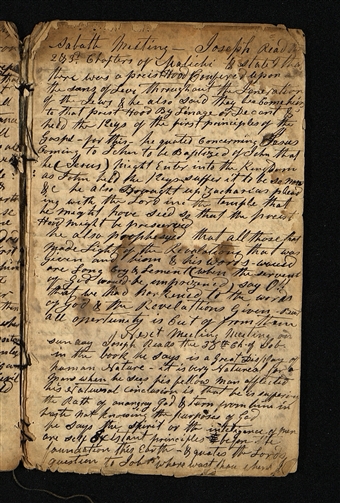 Sabath Meeting - Joseph Read
2 & 3d Chapters of Malichi & stated that
there was a preisthood confered upon
the sons of Levi throughout the Generations
of the Jews & he also said they
to that priest Hood By Linage or Decent &
held the Keys of the first principles of the
Gospel - for this he quoted Concerning Jesus
Coming to John to be Baptized of John that
he (Jesus) might Enter into the Kingdom
as John held the Keys suffer it to be so now
&c he also Brought up Zacharias plead
ing with the Lord in the temple that
he might have seed so that the preist
Hood might be preserved
he also prophesyed that all those that
made Light of the Revelations that was
Given and & his words - would
are Long Cry & Lement when the servent
of God would be say Oh
that we had Harkened to the words
of God & the Revelations Given -
all opertunity is Cut of from them
Next Meeting Meeting on
sunday Joseph Reads the 38th Ch of Job
in the book he says is a Great Display of
human Nature - it is very Natureel for a
man when he sees his fellow man afflicted
his Natureal is that he is suffering
the Rath of an angry God & turn from him in
haste not knowing the purposes of God
he says the spirit or the inteligence of men
are self Existant principles before the
foundation this Earth - & quotes the Lords
question to Job "where wast thou when I